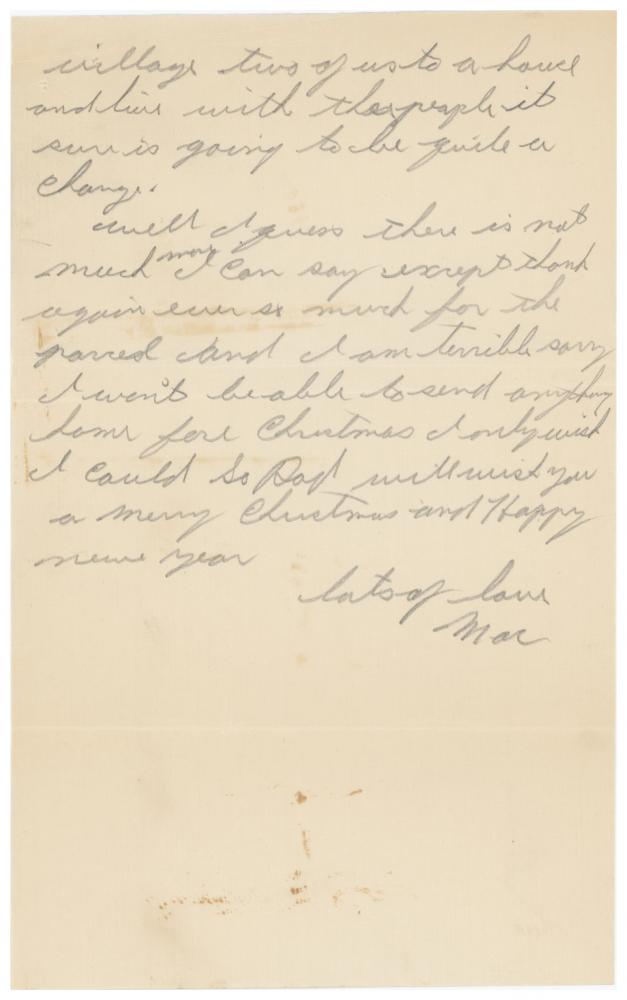 village two of us to a house
and live with the people it
sure is going to be quite a
change.
well I guess there is not
much more I can say except thank
again ever so much for the
parcel and I am terrible sorry
I won't be able to send anything
home fore Christmas I only wish
I could So Dad will wish you
a merry Christmas and Happy
new year
lots of love
Mac